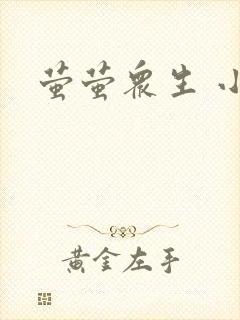 萤萤众生 小
黄金左手